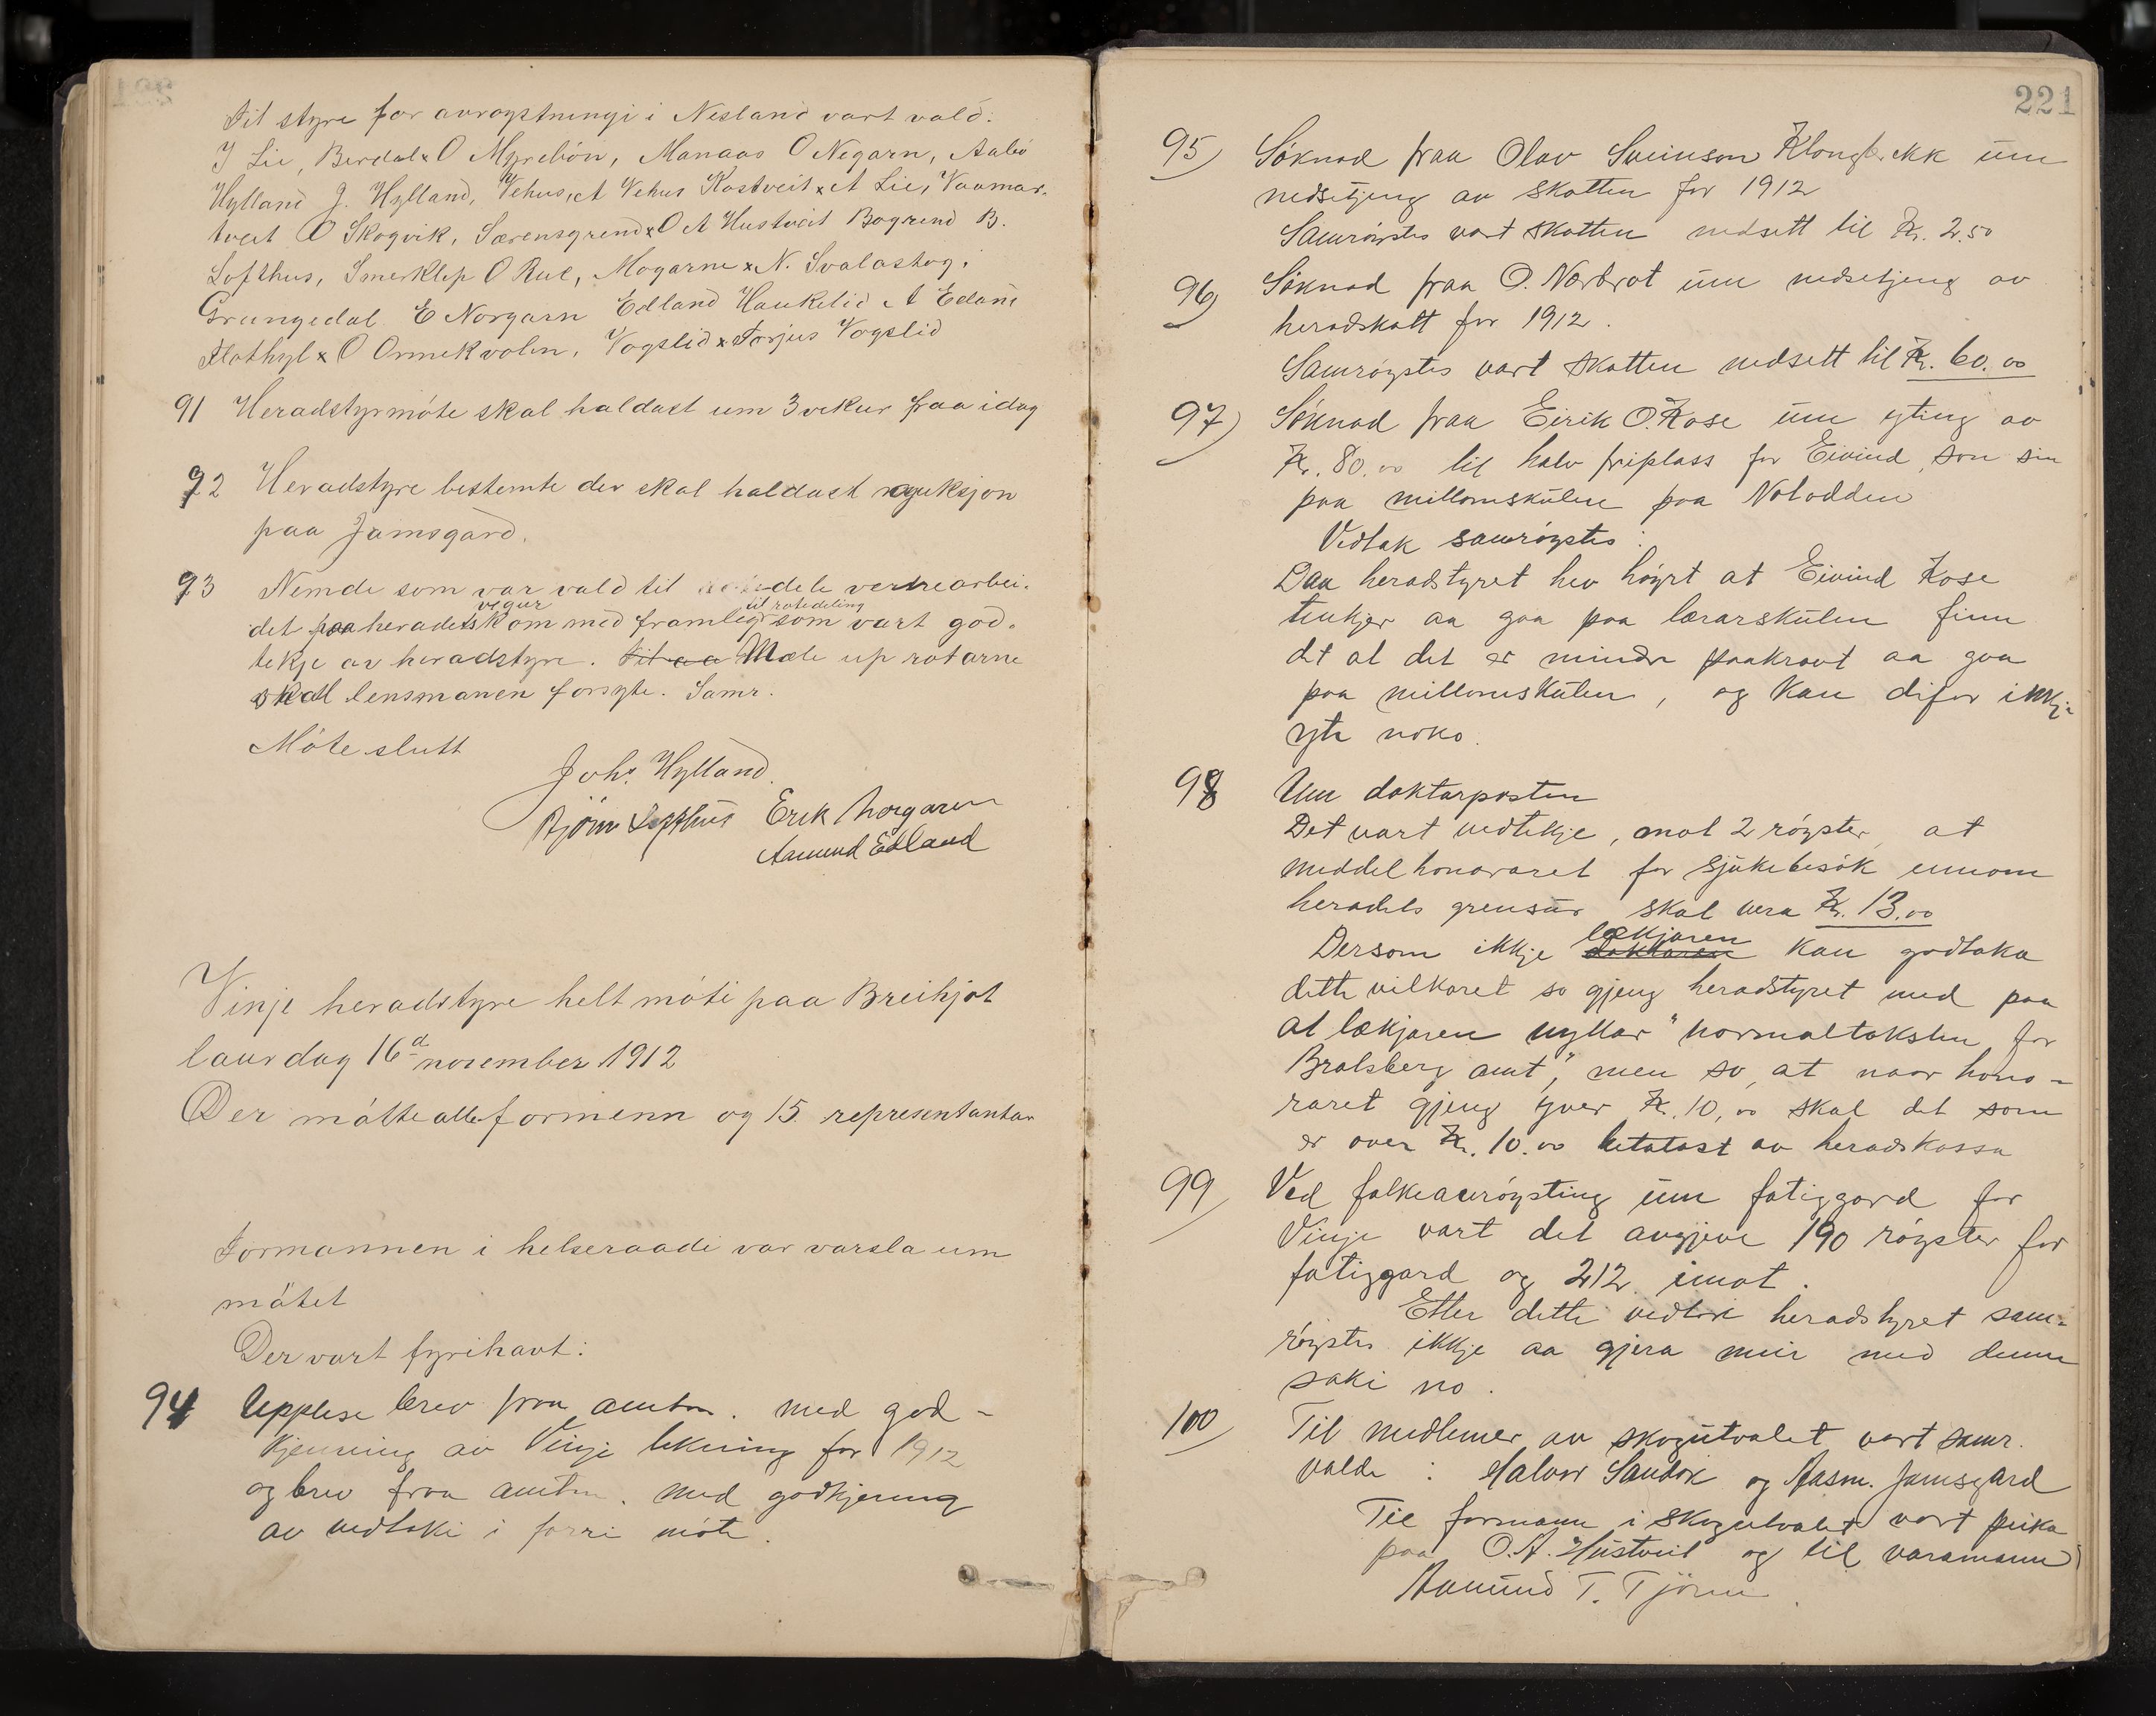 til styre for avrøystningi i Nesland vart vald:
J Lie, Berdal x O Myrebøn, Manaas O Negarn, Aabø
Hylland J. Hylland, Vehus, A Vehus Rastveit x A Lie, Vaamar-
tveit O Skogvik, Særensgrend x O A Hustveit Bøgrend B.
Lofthus, Smørklep O Rue, Mogarne x N. Svalastog,
Grungedal E Norgarn Edland Haukelid A Edland
Flothyl x O Ormekvolen, Vogslid x Torjus Vogslid
91 Heradstyrmøte skal haldast um 3 vekur fraa idag
92 Heradstyre bestemte der skal haldast
paa Jamsgard.
93 Nemdi som var vald til dele vertrearbei-
vegur til rotedeling
det paa heradets kom med framlegg som vart god-
tekje av heradstyre. Til aa Mæle up rotarne
skal lensmanen forsyte. Samr.
Møte slutt
Johs Hylland.
Bjørn Lofthus Erik Norgaren
Aamund Edland
Vinje heradstyre helt møte paa Breihjøt
laurdag 16d november 1912
Der møtte alle formenn og 15 representantar
Formannen i helseraadi var varsla um
møtet
Der vart fyrihavt:
94 Upplese brev fraa amtm. med god-
kjenning av Vinje likning for 1912
og brev fraa amtm. med godkjening
av vedtaki i forri møte.
221
95) Søknad fraa Olav Sveinson um
nedsetjeng av skatten for 1912
Samrøystes vart skatten nedsett til Kr. 2.50
96) Søknad fraa O. Nørbrot um nedsetjeng av
heradskatt for 1912.
Samrøystes vart skatten nedsett til Kr. 60.00
97) Søknad fraa Eirik O. Kose um yting av
Kr. 80.00 til halv friplass for Eivind, son sin
paa millomskulen paa Notodden
Vedtak samrøystes:
Daa heradstyret hev høyrt at Eivind Kose
tenkjer aa gaa paa lærarskulen finn
det at det er mindre paakravt aa gaa
paa millomskulen, og kan difor ikkje
yte noko.
98 Um doktarposten
Det vart vedtekje, mot 2 røyster, at
meddelhonoraret for sjukebesøk innom
heradets grensur skal vera Kr. 13.00
lækjaren
Dersom ikkje doktaren kan godtaka
dette vilkaret so gjeng heradstyret med paa
at lækjaren nyttar "normaltaksten for
Bratsberg amt", men so, at naar hono-
raret gjeng yver Kr. 10,00 skal det som
er over Kr. 10.00 betalast av heradskassa
99) Ved folkeavrøysting um fatiggard for
Vinje vart det avgjeve 190 røyster for
fatiggard og 212 imot.
Etter dette vedtok heradstyret sam-
røystes ikkje aa gjera meir med denne
saki no.
100) Til medlemer av skogutvalet vart samr.
valde: Halvor Sandok og Aasm. Jamsgard
Til formann i skogutvalet vart peika
paa O.A. Hustveit og til varamann
Aamund T. Tjønn.